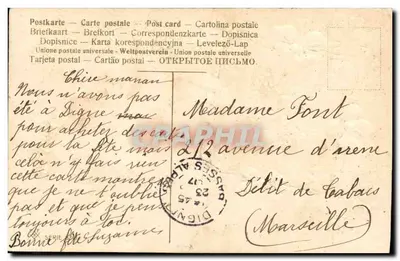 Postkarte - Carte postale - Post card - Cartolina postale
Briefkaart - Brefkort - Correspondenzkarte - Dopisnica
Dopisnice - Karta korespondencyjna - Levelező-Lap
Union postale universelle - Weltpostverein - Union postale universelle
Tarjeta postal - Cartão postal - ОТКРЫТОЕ ПИСЬМО.
Chère maman
Nous n'avons pas
été à Digne
pour acheter des cartes
pour la fête mais
cela n'y fais rien
cette carte montrera
que je ne t'oublie
pas et que je pense
toujours à toi.
Bonne fête Suzanne
Madame Font
212 avenue d'arenc
Débit de Tabacs
(Marseille)
DIGNE
BASSES ALPES